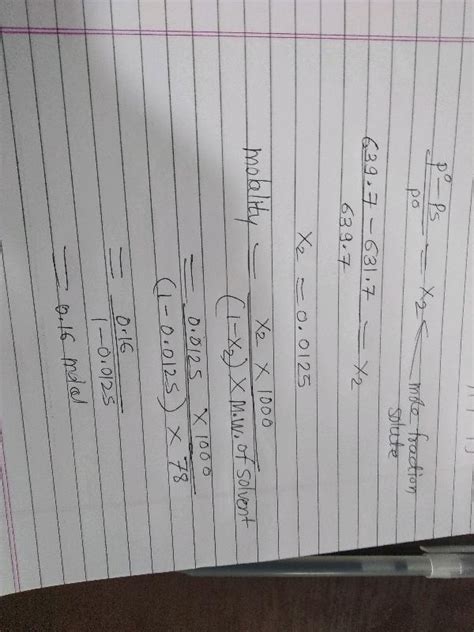 p° - ps / p° = x2 ← mole fraction solute
639.7 - 631.7 / 639.7 = x2
x2 = 0.0125
molality = x2 × 1000 / (1-x2) × M.W. of solvent
= 0.0125 × 1000 / (1-0.0125) × 78
= 0.16 / 1-0.0125
= 0.16 molal